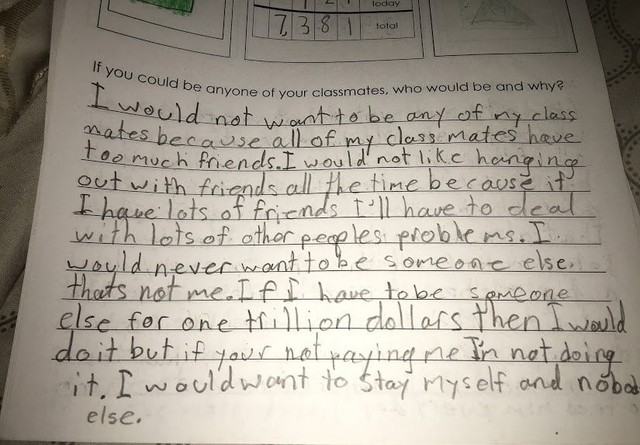 today
7,381 total
If you could be anyone of your classmates, who would be and why?
I would not want to be any of my class
mates because all of my class mates have
too much friends. I would not like hanging
out with friends all the time because if
I have lots of friends I'll have to deal
with lots of other peoples problems. I
would never want to be someone else.
thats not me. If I have to be someone
else for one trillion dollars then I would
do it but if your not paying me I'm not doing
it. I would want to stay myself and nobod
else.